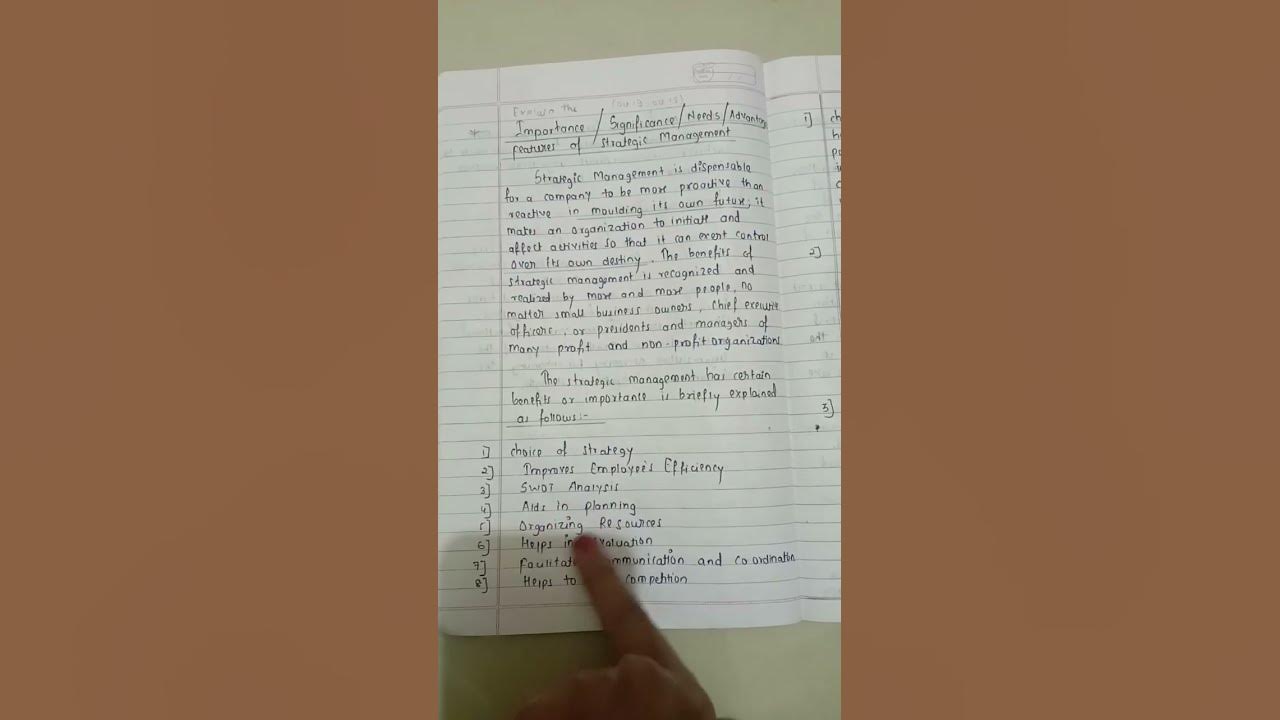 Explain the
Importance / Significance / Needs / Advantag
features of strategic Management
Strategic Management is dispensable
for a company to be more proactive than
reactive in moulding its own future; it
makes an organization to initiate and
affect activities so that it can exert control
over its own destiny. The benefits of
strategic management is recognized and
realized by more and more people, no
matter small business owners, chief executive
officers, or presidents and managers of
many profit and non-profit organizations
The strategic management has certain
benefits or importance is briefly explained
as follows:-
1] choice of strategy
2] Improves Employee's Efficiency
3] SWOT Analysis
4] Aids in planning
5] Organizing Resources
6] Helps in evaluation
7] communication and coordination
8] Helps to competition
1]
2]
3]